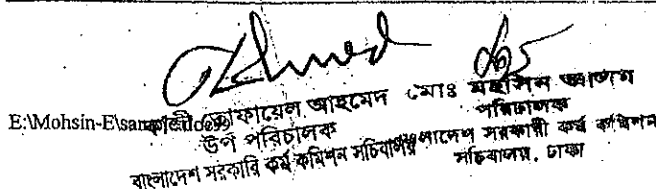 Ahmed
E:\Mohsin-E\sam
কাজী তোফায়েল আহমেদ
উপ পরিচালক
বাংলাদেশ সরকারি কর্ম কমিশন সচিবালয়
মোঃ মহসিন আলম
পরিচালক
বাংলাদেশ সরকারী কর্ম কমিশন
সচিবালয়, ঢাকা